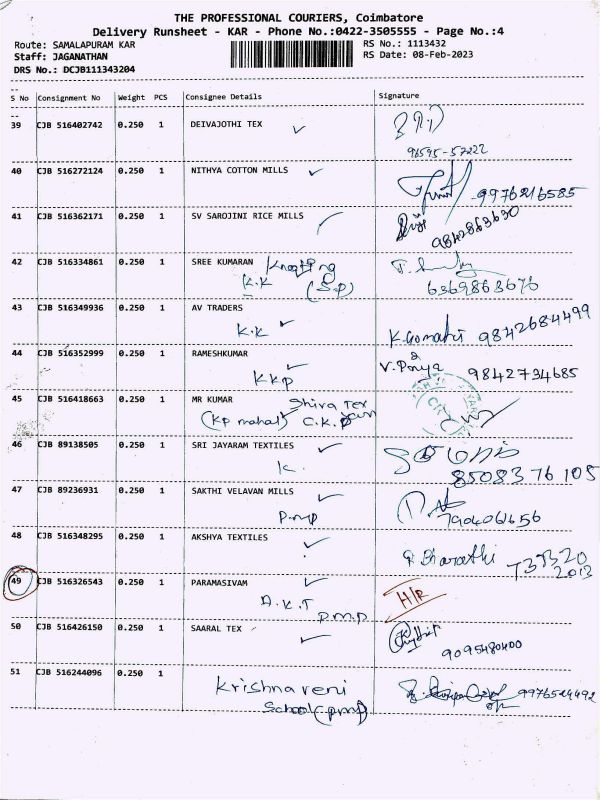 THE PROFESSIONAL COURIERS, Coimbatore
Delivery Runsheet - KAR - Phone No.:0422-3505555 - Page No.:4
Route: SAMALAPURAM KAR RS No.: 1113432
Staff: JAGANATHAN RS Date: 08-Feb-2023
DRS No.: DCJB111343204
--
S No Consignment No Weight PCS Consignee Details Signature
--
39 CJB 516402742 0.250 1 DEIVAJOTHI TEX
96595-57222
40 CJB 516272124 0.250 1 NITHYA COTTON MILLS
9976216585
41 CJB 516362171 0.250 1 SV SAROJINI RICE MILLS
9842863630
42 CJB 516334861 0.250 1 SREE KUMARAN
K.K (S.P) 6369863676
43 CJB 516349936 0.250 1 AV TRADERS
K.K K.Gomathi 9842684499
44 CJB 516352999 0.250 1 RAMESHKUMAR
KKP V.Priya 9842734685
45 CJB 516418663 0.250 1 MR KUMAR Shiva Tex
(KP mahal) C.K.P
46 CJB 89138505 0.250 1 SRI JAYARAM TEXTILES
K. 85083 76 105
47 CJB 89236931 0.250 1 SAKTHI VELAVAN MILLS
P.M.P 7904061656
48 CJB 516348295 0.250 1 AKSHYA TEXTILES
Bharathi
49 CJB 516326543 0.250 1 PARAMASIVAM H/R
A.K.T P.M.P
50 CJB 516426150 0.250 1 SAARAL TEX
9095480400
51 CJB 516244096 0.250 1 Krishnaveni
School (P.M.P) 9976544492